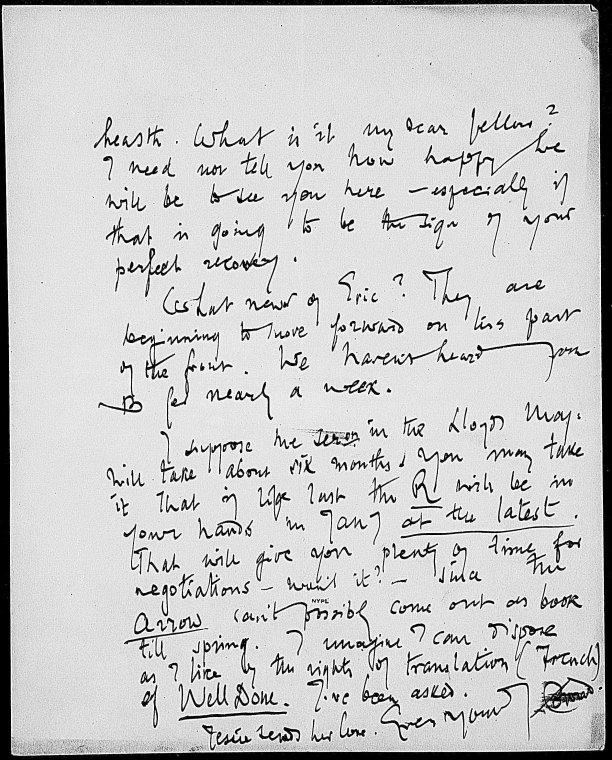 health. What is it my dear fellow?
I need not tell you how happy we
will be to see you here – especially if
that is going to be the sign of your
perfect recovery.
What news of Eric? They are
beginning to move forward on his part
of the front. We haven't heard from
B for nearly a week.
I suppose the in the Lloyds Mag:
will take about six months. You may take
it that if life last the R will be in
your hands in Jany at the latest.
That will give you plenty of time for
negotiations – won't it? – since the
NYPL
Arrow can't possibly come out as book
till spring. I imagine I can dispose
as I like of the rights of translation (French)
of Well Done. I've been asked.
Jessie sends her love. Ever yours J. Conrad.